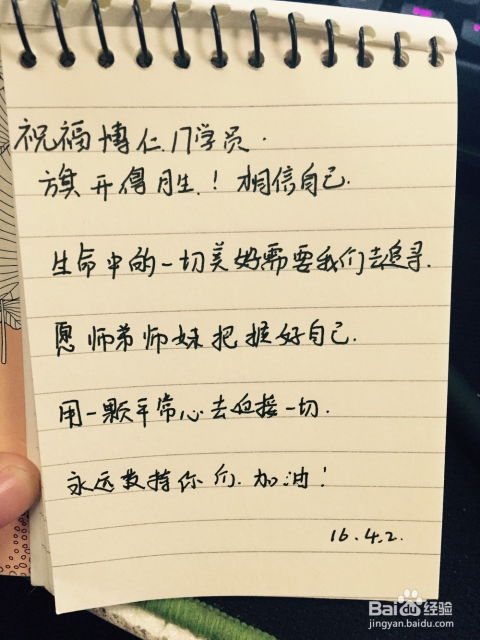 祝福博仁17学员.
旗开得胜！相信自己.
生命中的一切美好需要我们去追寻.
愿师弟师妹把握好自己.
用一颗平常心去迎接一切.
永远支持你们.加油！
16.4.2.
Baidu经验
jingyan.baidu.com